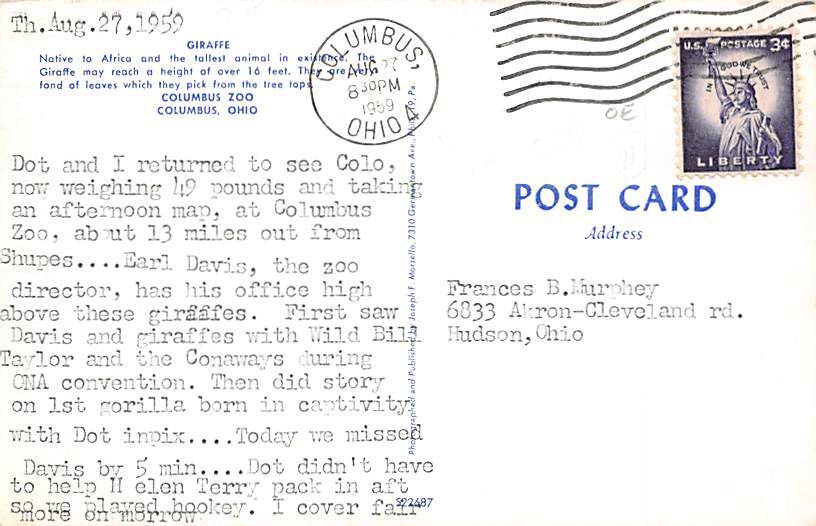 Th.Aug.27,1959
GIRAFFE
Native to Africa and the tallest animal in existence. The
Giraffe may reach a height of over 16 feet. They are very
fond of leaves which they pick from the tree tops.
COLUMBUS ZOO
COLUMBUS, OHIO
COLUMBUS,
AUG 27
8 30PM
1959
OHIO
U.S. POSTAGE 3¢
IN GOD WE TRUST
LIBERTY
OE
Dot and I returned to see Colo,
now weighing 49 pounds and taking
an afternoon map, at Columbus
Zoo, about 13 miles out from
Shupes....Earl Davis, the zoo
director, has his office high
above these giraffes. First saw
Davis and giraffes with Wild Bill
Taylor and the Conaways during
ONA convention. Then did story
on 1st gorilla born in captivity
with Dot inpix....Today we missed
Davis by 5 min....Dot didn't have
to help H elen Terry pack in aft
so we played hookey. I cover fair
more on morrow
S22487
Photographed and Published by Joseph F. Morsello, 7310 Germantown Ave., Phila. 19, Pa.
POST CARD
Address
Frances B.Murphey
6833 Akron-Cleveland rd.
Hudson,Ohio